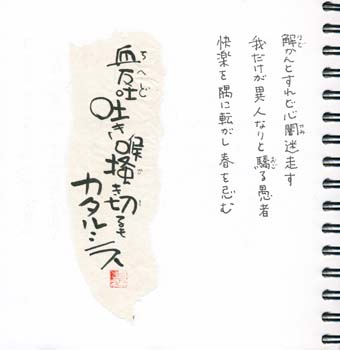 解かんとすれど心闇迷走す
我だけが異人なりと驕る愚者
快楽を隅に転がし春を忌む
血反吐吐き喉掻き切るも
カタルシス